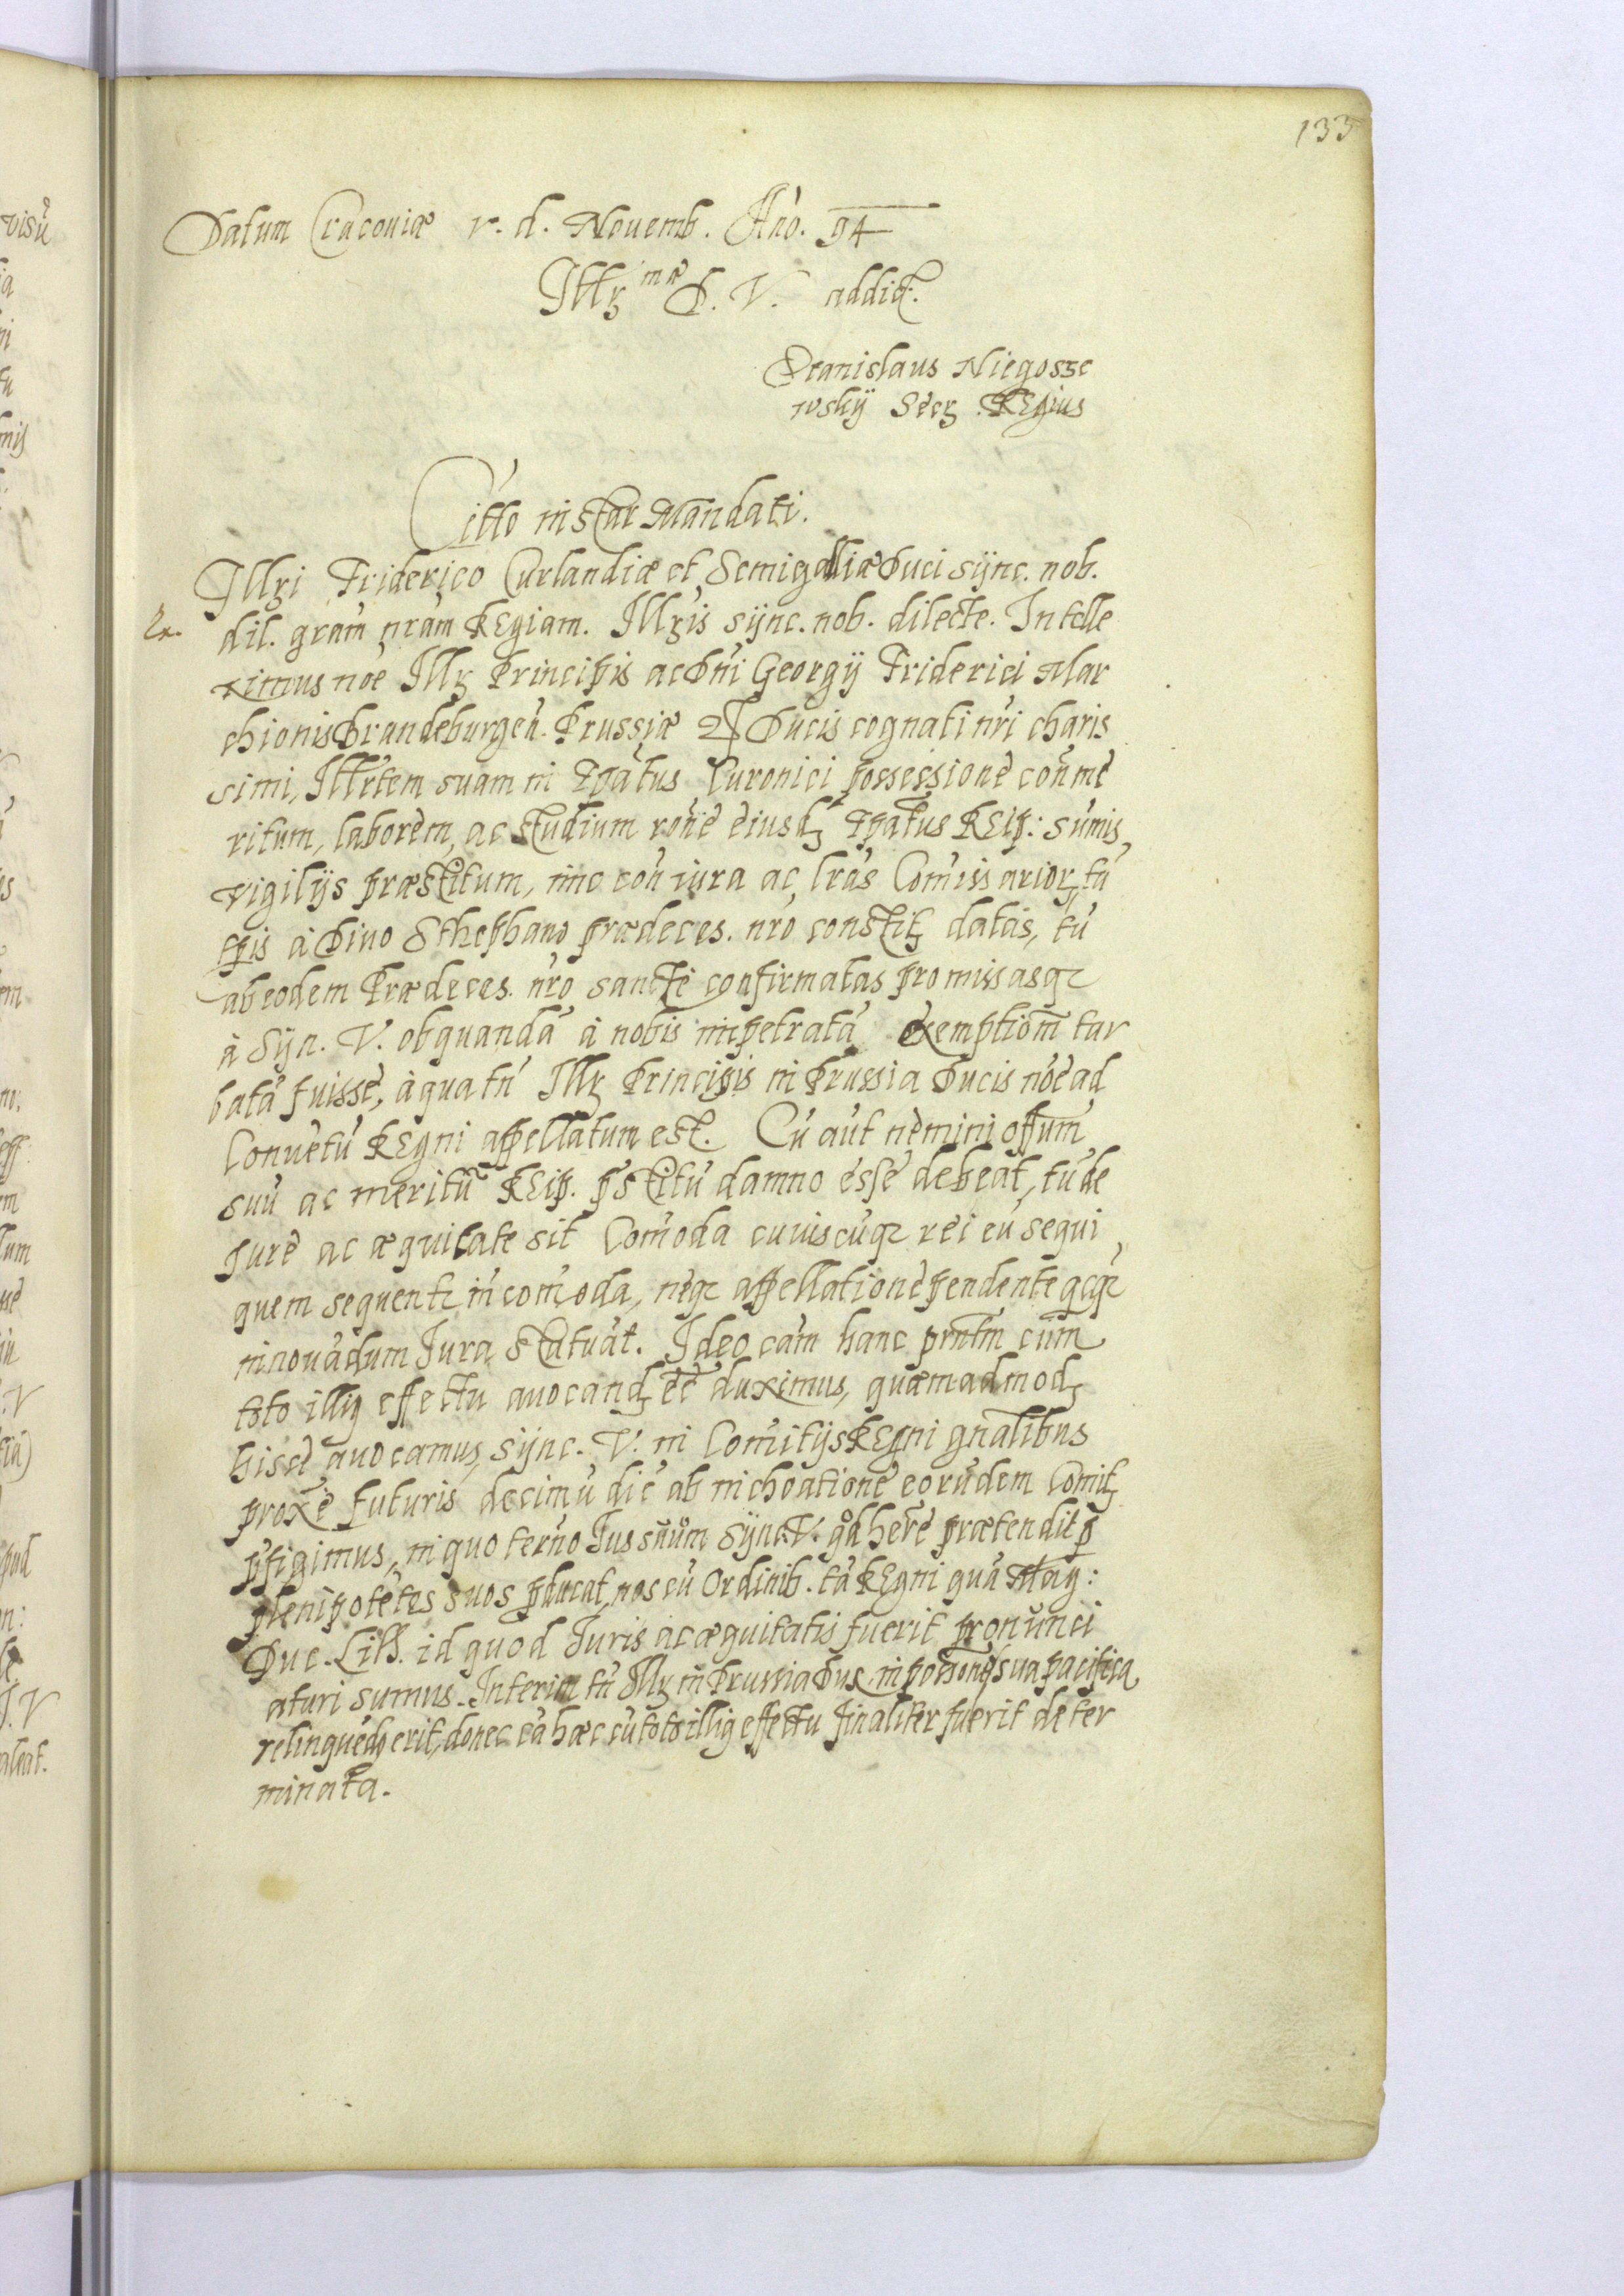 133
Datum Cracoviæ v. d. Novemb. Añó. 94
Illrmæ D. V. addict.
Stanislaus Niegosze
wskÿ Secr Regius
Citto instar Mandati.
Illri Friderico Curlandiæ et Semigalliæ Duci sÿnc. nob.
dil. gram nram Regiam. Illris sÿnc. nob. dilecte. Intelle
ximus noe Illr Principis ac Dni Georgÿ Friderici Mar
chionis Brandeburgen. Prussiæ Ducis cognati nri charis
simi, Illrtem suam in Epatus Curonici possessione
ritum, laborem, ac studium rone eiusd Epatus Reip: sumis
vigilÿs præstitum, iura ac lras Comissarior, tu
à Divo Sthephano prædeces. nro constit datas, tu
ab eodem Prædeces. nro sancte confirmatas promissasq
à Sÿn. V. ob quanda à nobis impetrata exemptiom tur
bata fuisse, à qua tn Illr Principis in Prussia Ducis noe ad
Convetu Regni appellatum est. Cu aut nemini offum
suu ac meritu Reip. pstitu damno esse debeat, tu de
Jure ac æquitate sit Comoda cuiuscuq rei eu sequi
quem sequentr incomoda, neq appellatione pendente qcq
innovadum Jura statuat. Ideo cam hanc prntm cum
toto illi effectu avocand ee duximus, quemadmod
hisce avocamus, sÿnc. V. in Comitÿs Regni gnalibus
proxe futuris decimu die ab inchoatione eorudem Comit
pfigimus, in quo termo Jus suum Sÿnc. V. qd here prætendit p
plenipotetes suos pducat, nos cu Ordinib. ta Regni qua Mag:
Duc. Lith. id quod Juris ac æquitatis fuerit pronunci
aturi sumus. Interim tn Illr in Prussia Dux in sua pacifica
relinqued erit, donec ca hæc cu toto illi effectu finaliter fuerit deter
minata.